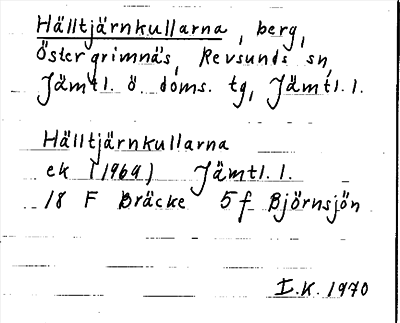 Hälltjärnkullarna, berg,
Östergrimnäs, Revsunds sn,
Jämtl. ö. doms. tg, Jämtl. l.
Hälltjärnkullarna
ek (1969) Jämtl. l.
18 F Bräcke 5f Björnsjön
I.K. 1970